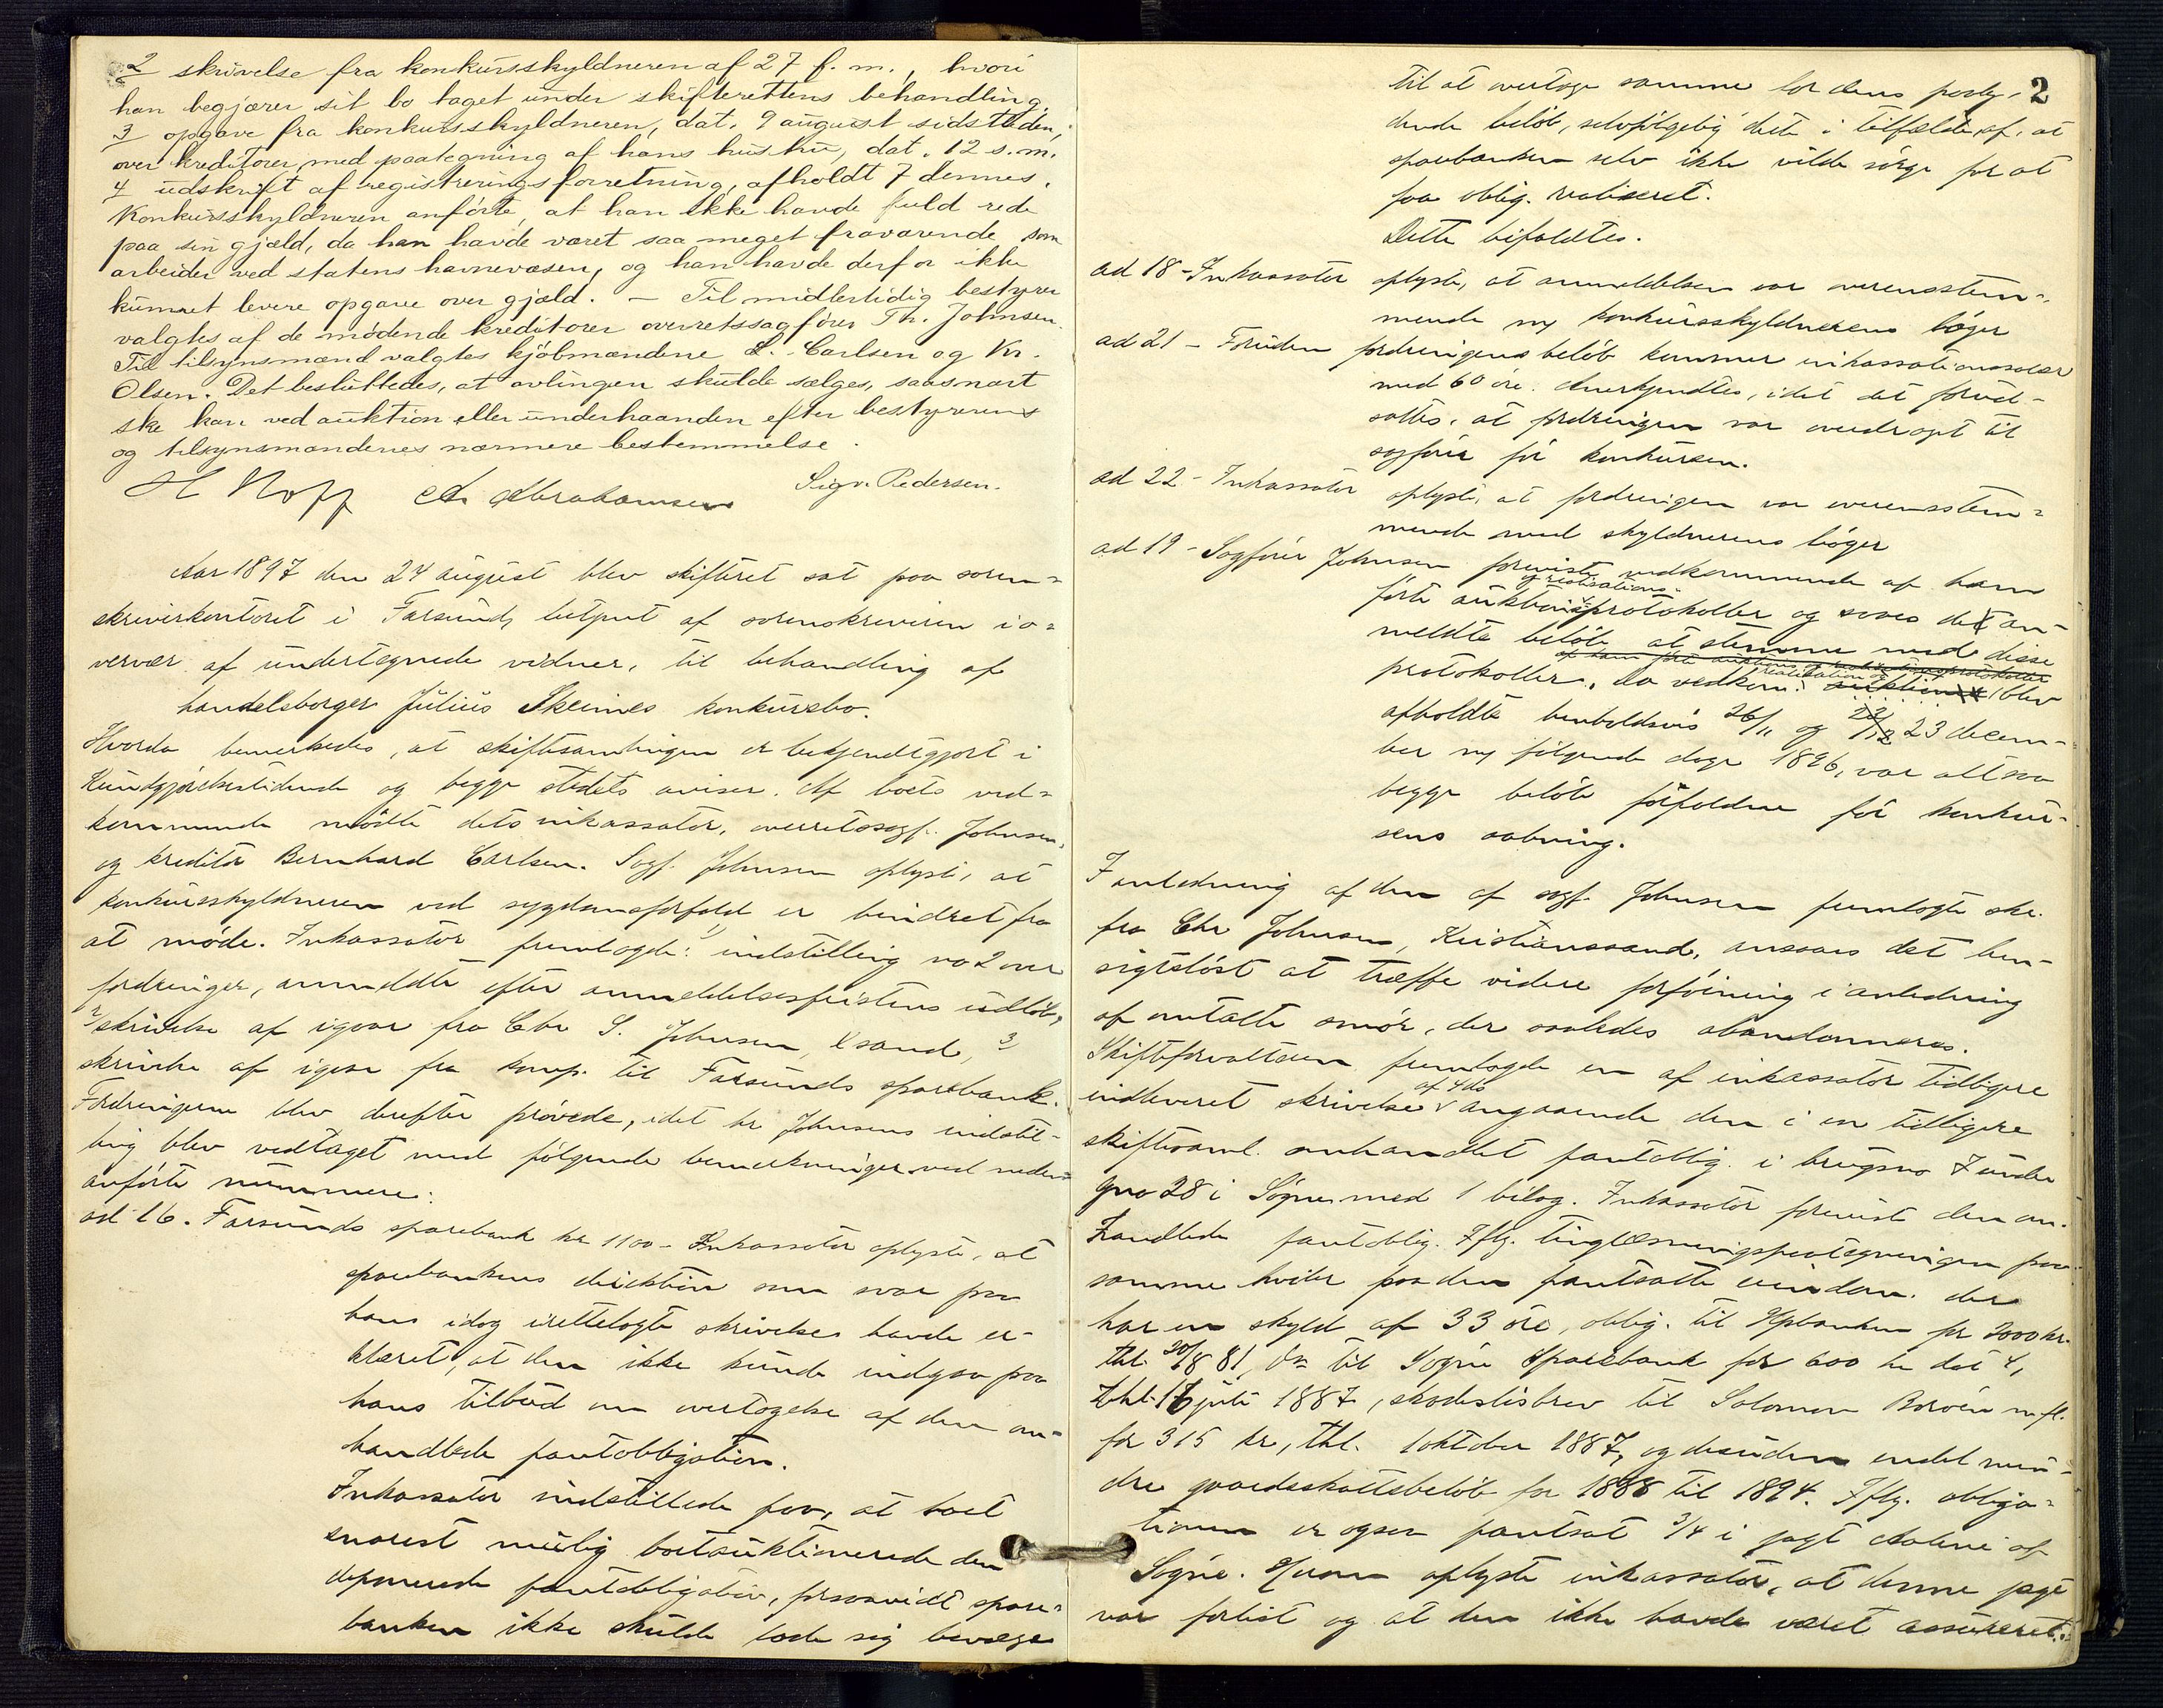 2 skrivelse fra konkursskyldneren af 27 f. m., hvori
han begjærer sit bo taget under skifterettens behandling.
3 opgave fra konkursskyldneren, dat. 9 august sidstleden,
over kreditorer, med paategning af hans hustru, dat. 12 s. m.
4 udskrift af registreringsforretning, afholdt 7 dennes.
Konkursskyldneren anførte, at han ikke havde fuld rede
paa sin gjæld, da han havde været saa meget fraværende som
arbeider ved statens havnevæsen, og han havde derfor ikke
kunnet levere opgave over gjæld. – Til midlertidig bestyrer
valgtes af de mødende kreditorer overretssagfører Th. Johnsen.
Til tilsynsmænd valgtes kjøbmændene L. Carlsen og Kr.
Olsen. Det besluttedes, at avlingen skulde sælges, saasnart
ske kan ved auktion eller underhaanden efter bestyrerens
og tilsynsmændenes nærmere bestemmelse.
H Roff A. Abrahamsen Sigv. Pedersen.
Aar 1897 den 24 august blev skifteret sat paa soren-
skriverkontoret i Farsund, betjent af sorenskriveren i o-
vervær af undertegnede vidner, til behandling af
handelsborger Julius Skeimes konkursbo.
Hvorda bemerkedes, at skiftesamlingen er bekjendtgjort i
Kundgjørelsestidende og begge stedets aviser. Af boets ved-
kommende mødte dets inkassator, overretssagf. Johnsen,
og kreditor Bernhard Carlsen. Sagf. Johnsen oplyste, at
konkursskyldneren ved sygdomsforfald er hindret fra
at møde. Inkassator fremlagde: 1) indstilling no 2 over
fordringer, anmeldte efter anmeldelsesfristens udløb,
2/ skrivelse af igaar fra Chr S. Johnsen, Xsand, 3/
skrivelse af igaar fra komp. til Farsunds sparebank.
Fordringerne blev derefter prøvede, idet hr Johnsens indstil-
ling blev vedtaget med følgende bemerkninger ved neden-
anførte nummere:
ad 16. Farsunds sparebank kr 1100 – Inkassator oplyste, at
sparebankens direktion som svar paa
hans idag irettelagte skrivelse havde er-
klæret, at den ikke kunde indgaa paa
hans tilbud om overtagelse af den om-
handlede pantobligation.
Inkassator indstillede paa, at boet
snarest mulig bortauktionerede den
deponerede pantobligation, forsaavidt spare-
banken ikke skulde lade sig bevæge
2
til at overtage samme for dens paaly-
dende beløb, selvfølgelig dette i tilfælde af, at
sparebanken selv ikke vilde sørge for at
faa oblig. realiseret.
Dette bifaldtes.
ad 18 – Inkassator oplyste, at anmeldelsen var overensstem-
mende m/ konkursskyldnerens bøger
ad 21 – Foruden fordringens beløb kommer inkassationssalær
med 60 øre. Anerkjendtes, idet det forud-
sattes, at fordringen var overdraget til
sagfører før konkursen.
ad 22 – Inkassator oplyste, at fordringen var overensstem-
mende med skyldnerens bøger
ad 19 – Sagfører Johnsen foreviste vedkommende af ham
og realisations-
førte auktionsprotokoller og saaes det an-
meldte beløb at stemme med disse
af ham førte auktions og realisationsprotokoller
protokoller. Da vedkom. realisation og auktion blev
afholdte henholdsvis 26/11 og 23/12 23 decem-
ber og følgende dage 1896, var altsaa
begge beløb forfaldne før konkur-
sens aabning.
I anledning af den af sagf. Johnsen fremlagte skr.
fra Chr Johnsen, Kristianssand, ansaaes det hen-
sigtsløst at træffe videre forføining i anledning
af omtalte smør, der saaledes abandonneres.
Skifteforvalteren fremlagde en af inkassator tidligere
indleveret skrivelse af 4 ds angaaende den i en tidligere
skiftesaml. omhandlet pantoblig. i brugsno 7 under
gno 28 i Søgne med 1 bilag. Inkassator foreviste den om-
handlede pantoblig. Iflg. tinglæsningspaategningen paa
samme hviler paa den pantsatte eiendom. der
har en skyld af 33 øre, oblig. til Hpbanken for 2000 kr.
thl. 20/8 81, do til Søgne Sparebank for 600 kr dat 4,
thl. 16 juli 1887, skadesløsbrev til Solomon Borøen m. fl.
for 315 kr, thl. 1 oktober 1887, og desuden endel min-
dre veiskattsbeløb for 1888 til 1894. Iflg. obliga-
tionen er ogsaa pantsat 3/4 i jagt Malene af
Søgne. Herom oplyste inkassator, at denne jagt
var forlist og at den ikke havde været assureret.